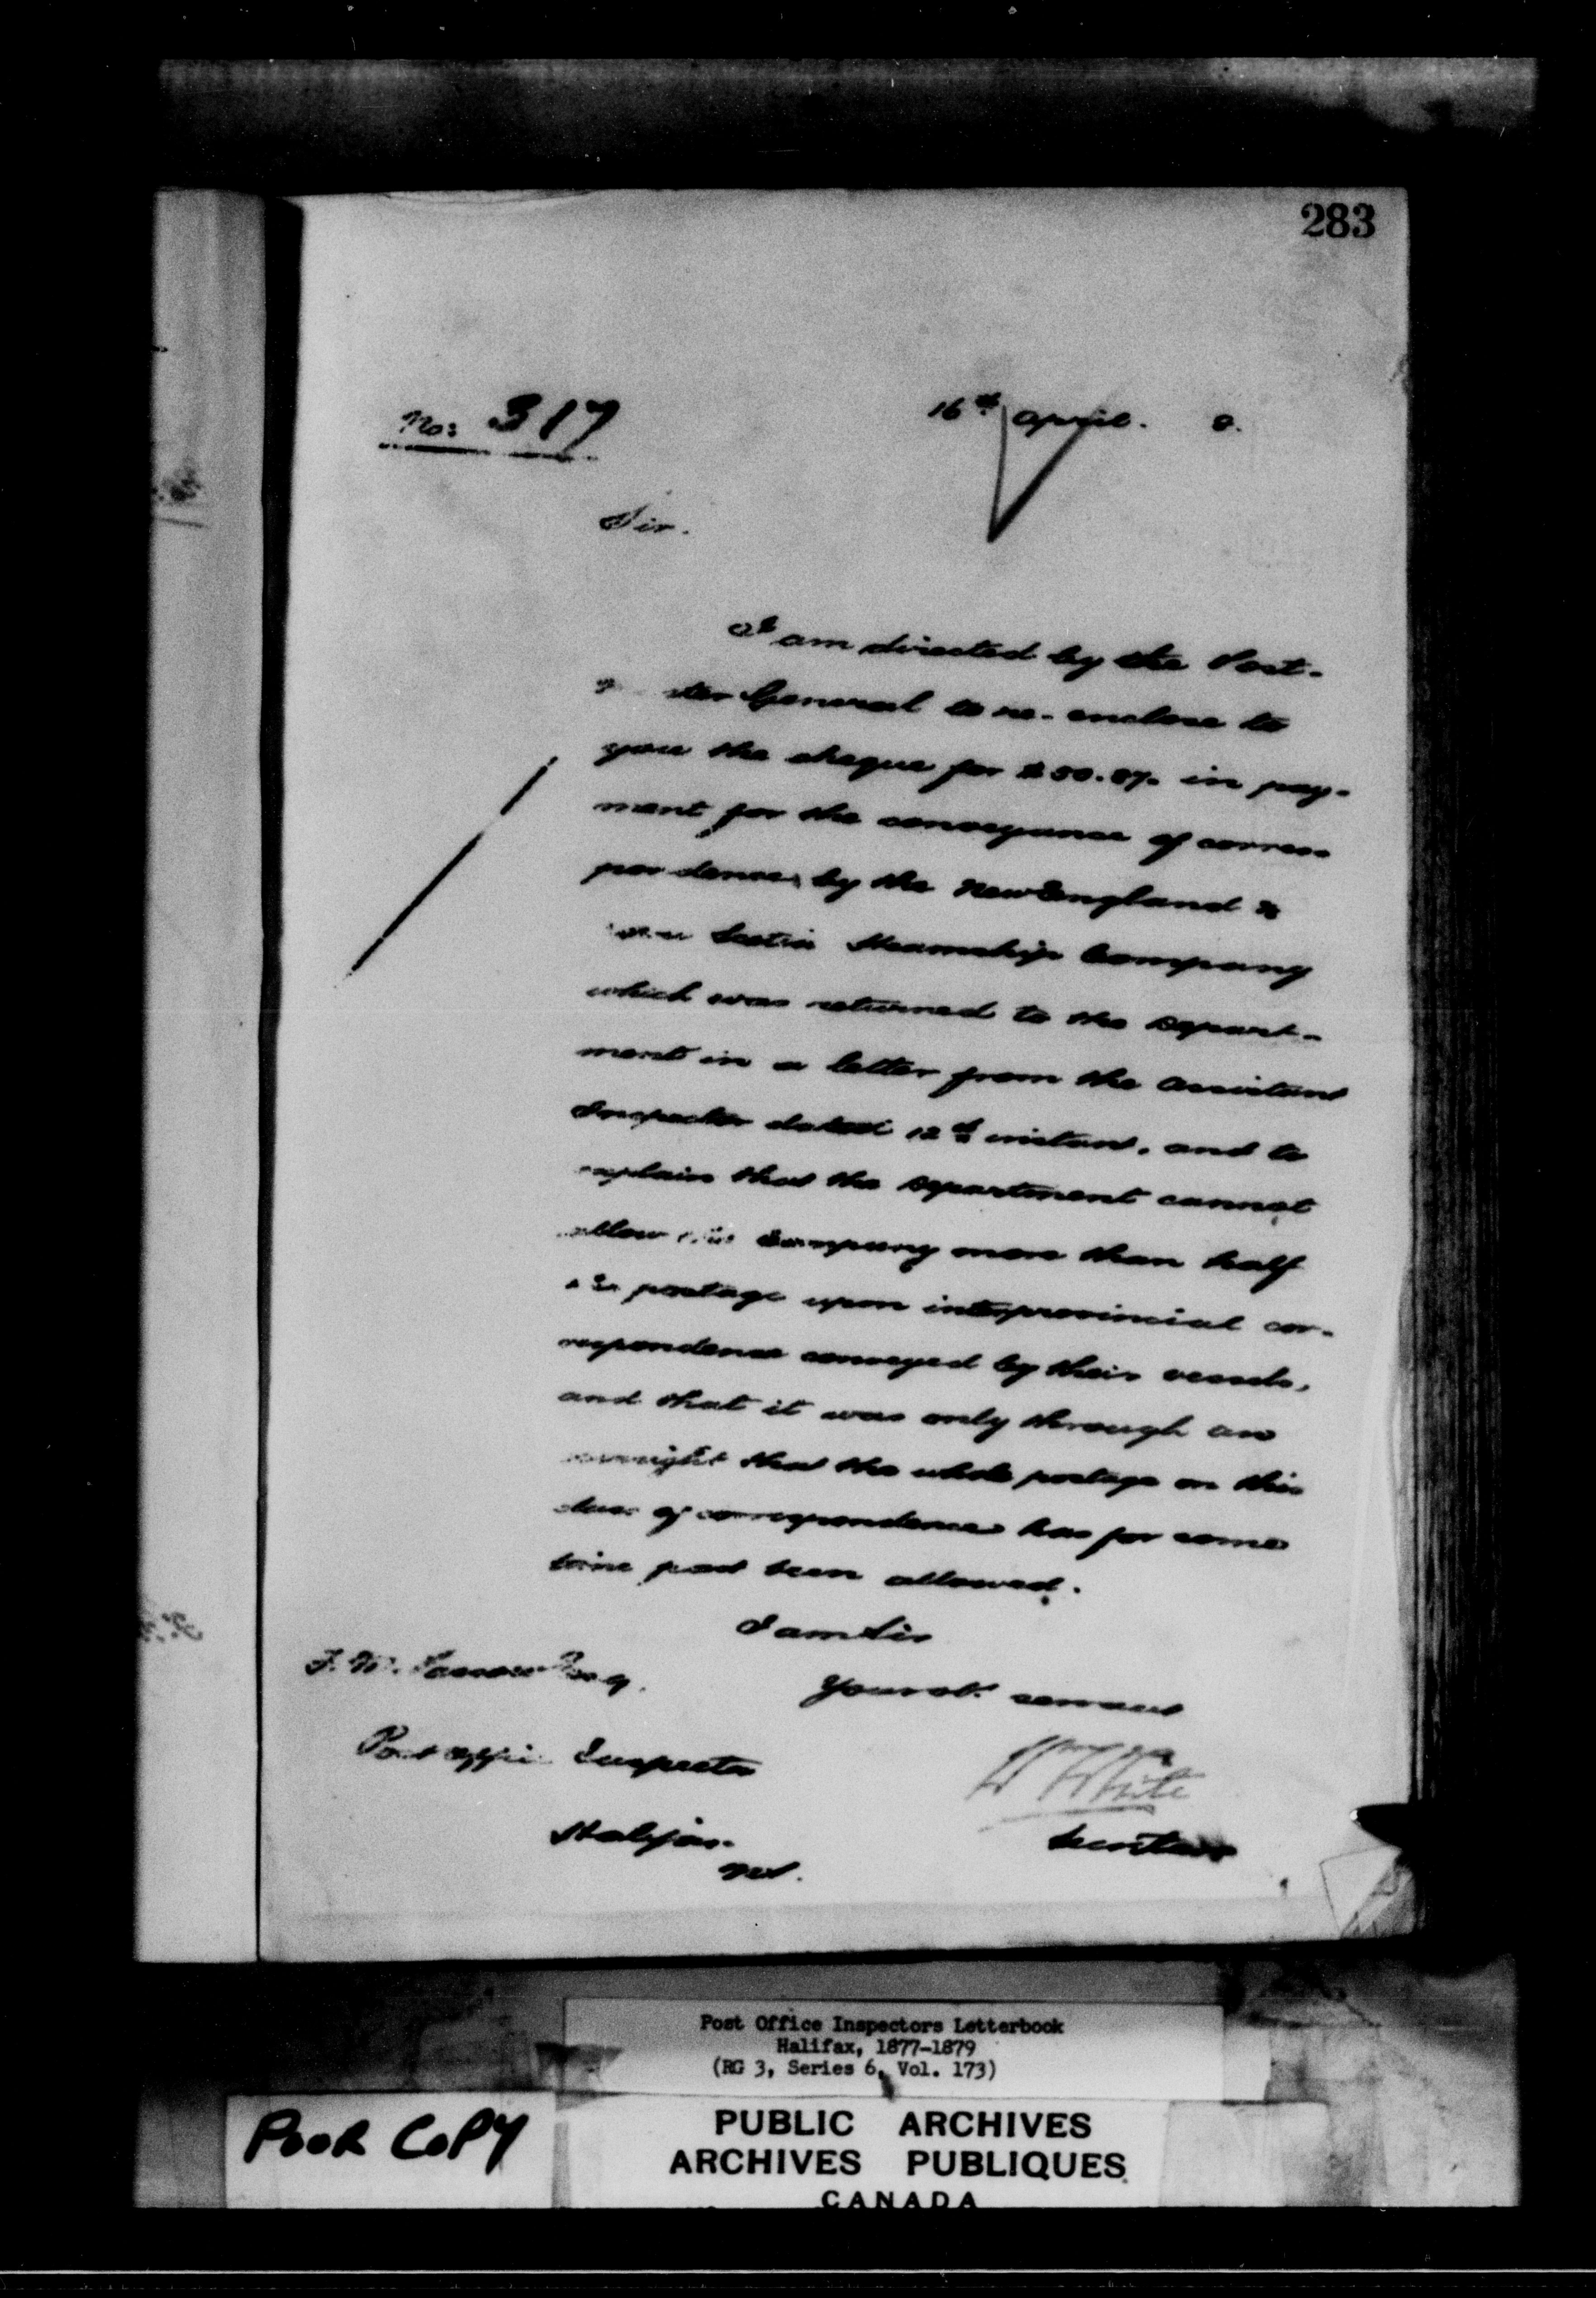 283
No: 317
16th April. 8.
Sir.
I am directed by the Post-
ter General to re-enclose to
you the cheque for $50.87. in pay-
ment for the conveyance of corres-
pondence, by the New England &
Scotia Steamship Company
which was returned to the Depart-
ment in a letter from the Assistant
Inspector dated 12th instant, and to
explain that the Department cannot
allow this Company more than half
the postage upon interprovincial cor-
respondence conveyed by their vessels,
and that it was only through an
oversight that the whole postage on this
class of correspondence has for some
time past been allowed.
I am Sir
Your obt. servant
Esq.
Post Office Inspector
W White
Halifax.
Secretary
N.S.
Post Office Inspectors Letterbook
Halifax, 1877-1879
(RG 3, Series 6, Vol. 173)
POOR COPY
PUBLIC ARCHIVES
ARCHIVES PUBLIQUES
CANADA